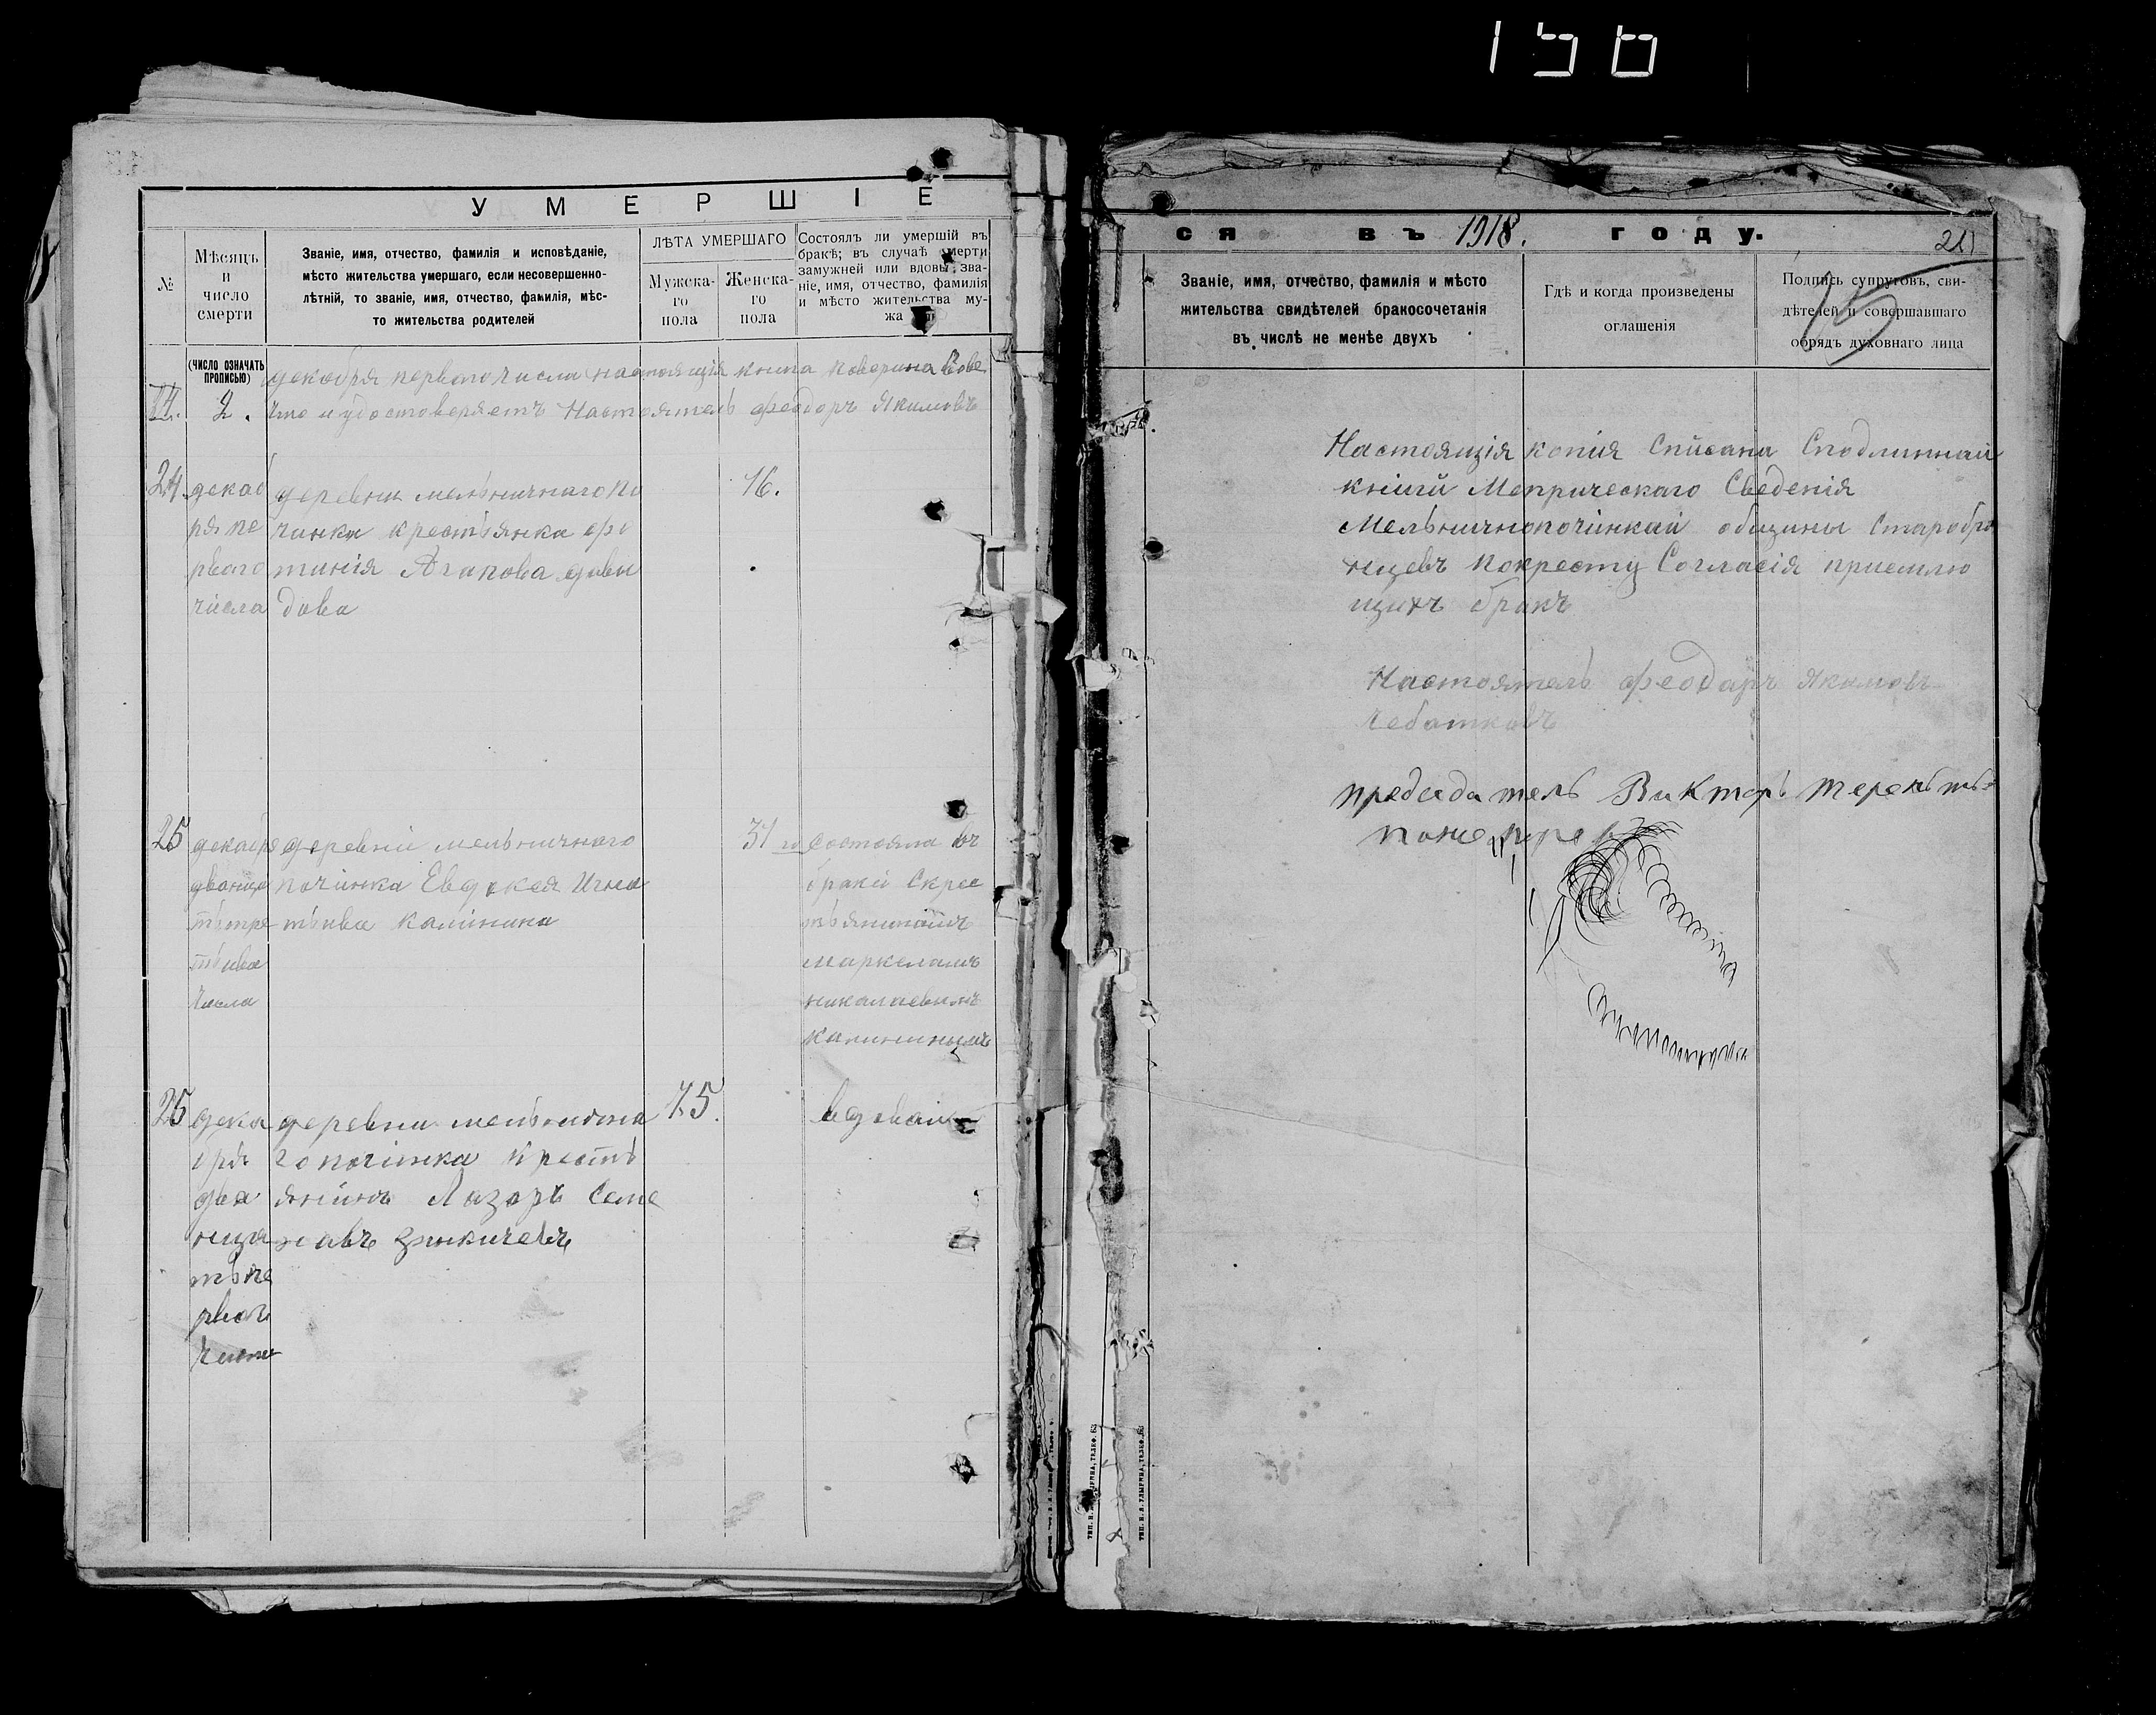 156
УМЕРШІЕ
№
Мѣсяцъ
и
число
смерти
Званіе, имя, отчество, фамилія и исповѣданіе,
мѣсто жительства умершаго, если несовершенно-
лѣтній, то званіе, имя, отчество, фамилія, мѣс-
то жительства родителей
ЛѢТА УМЕРШАГО
Мужска-
го
пола
Женска-
го
пола
Состоялъ ли умершій въ
бракѣ; въ случаѣ смерти
замужней или вдовы, зва-
ніе, имя, отчество, фамилія
и мѣсто жительства му-
жа
(ЧИСЛО ОЗНАЧАТЬ
ПРОПИСЬЮ)
декобря первого числа настоящія книга
2. Что и удостоверяетъ Настоятель Феодоръ Якимовъ
24
декаб
ря пе
рваго
числа
деревни мельничнаго по
чинка крестьянка фо
тинія Агапова давы
дова
16.
25
декабря
дванца
тьтре
тьива
числа
деревни мельничнаго
починка Евдокея Игна
тьива калинина
31
состояла въ
браки Скрес
тьянинамъ
маркеламъ
никалаевымъ
калининымъ
25
дека
бря
два
нца
тьпе
рваго
числа
деревни мельнична
го починка крестъ
янинъ Лазарь Семе
навъ
75.
СЯ ВЪ 1918. ГОДУ.
Званіе, имя, отчество, фамилія и мѣсто
жительства свидѣтелей бракосочетанія
въ числѣ не менѣе двухъ
Гдѣ и когда произведены
оглашенія
Подпись супруговъ, сви-
дѣтелей и совершавшаго
обрядъ духовнаго лица
15
Настоящія копія Списана Сподлиннай
книги Метрическаго Сведенія
Мельничнопочинкай общины Старобря
нцевъ покресту Согласія приемлю
щихъ бракъ
Настоятель Феодаръ Якимовъ
чебатковъ
председатель Викторъ Терентъ=